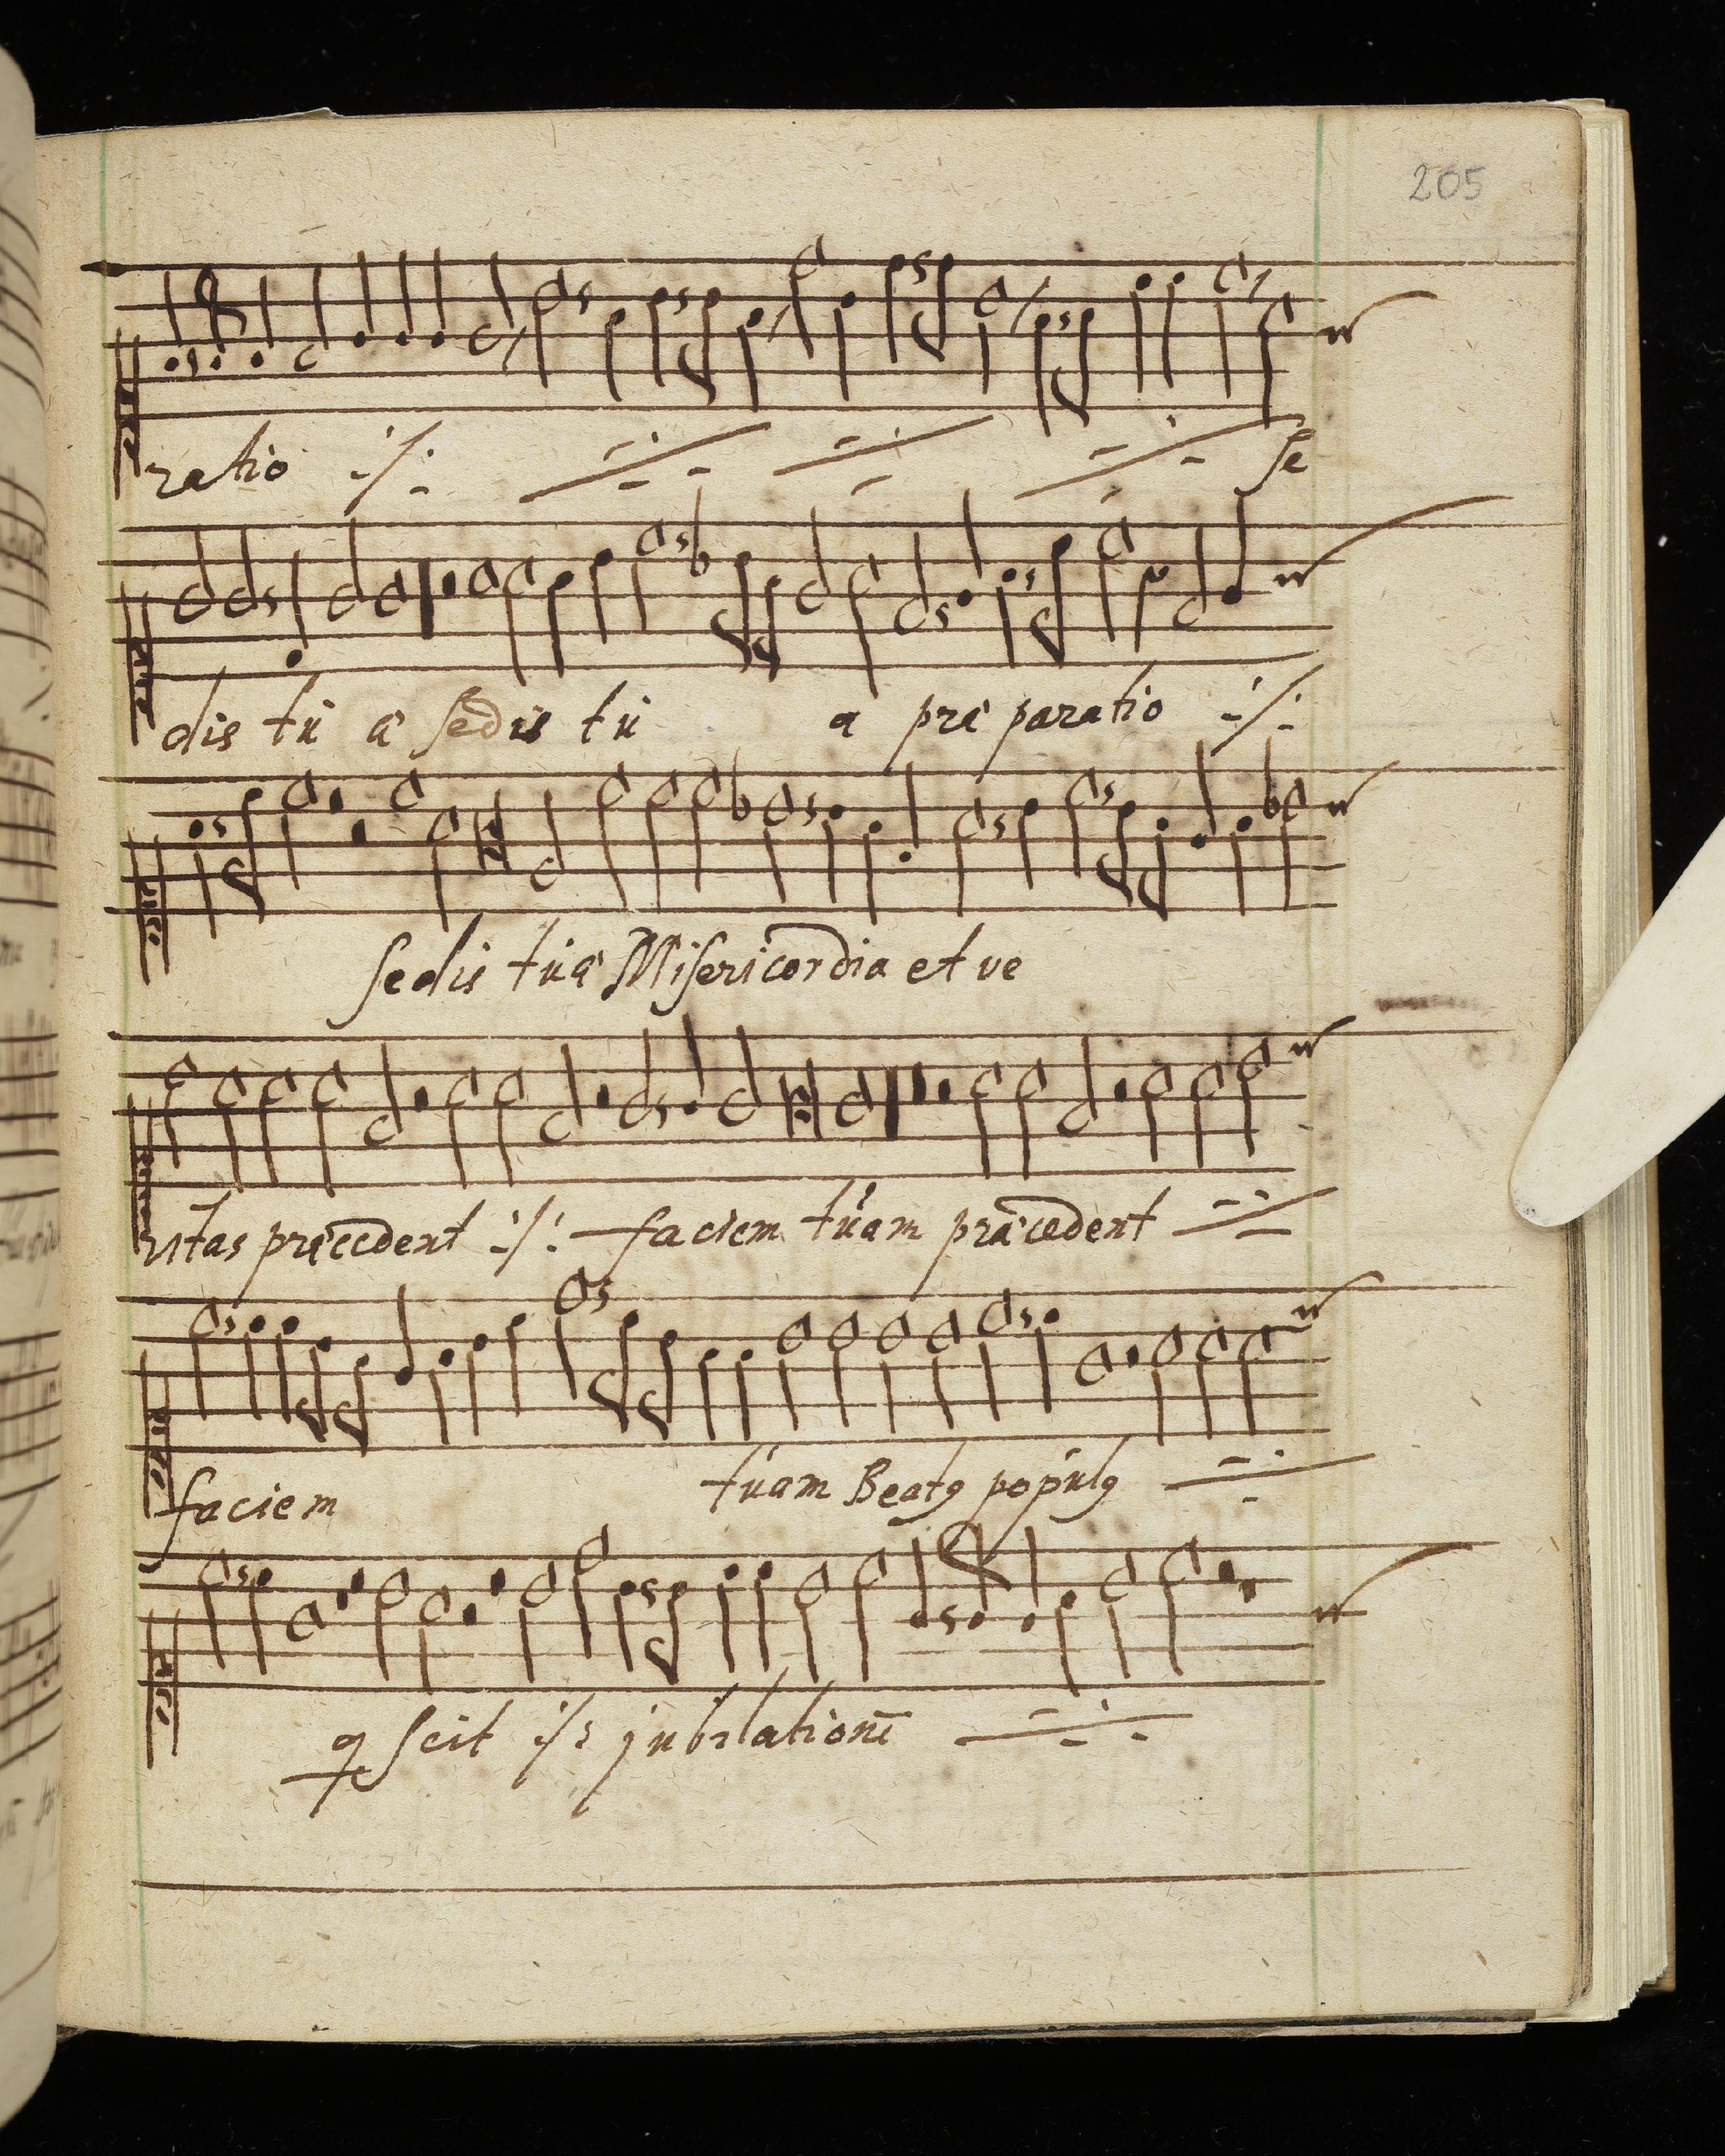 205
ratio ·/· ·/· ·/· ·/· se
dis tu a sedis tu a præ paratio ·/·
sedis tua Misericordia et ve
ritas præcedent ·/· faciem tuam præcedent ·/·
faciem tuam Beatꝰ populꝰ ·/·
q scit ·/· jubilationē ·/·